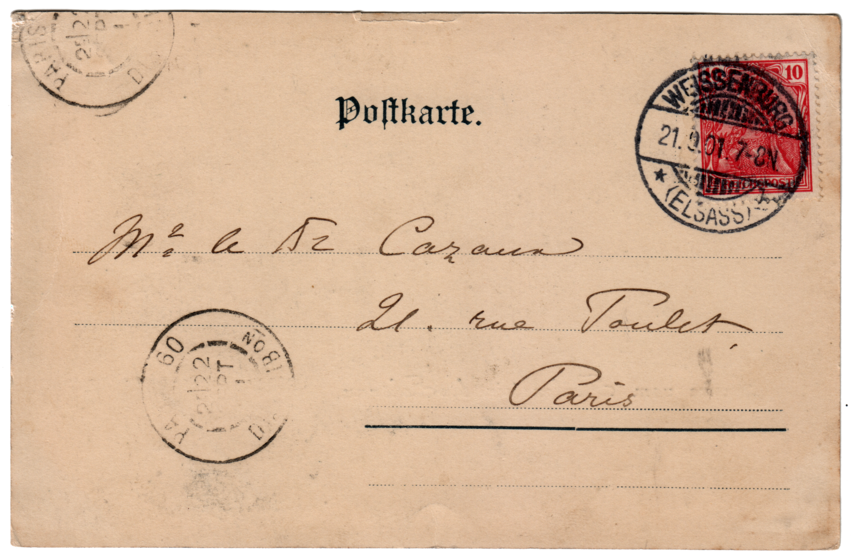 PARIS
22
DIS
Postkarte.
10
REICHSPOST
WEISSENBURG
21.9.01. 7-8N.
* (ELSASS)
Mr le Dr Cazaux
21. rue Poulet
Paris
PA 60
22
DISTRIBON